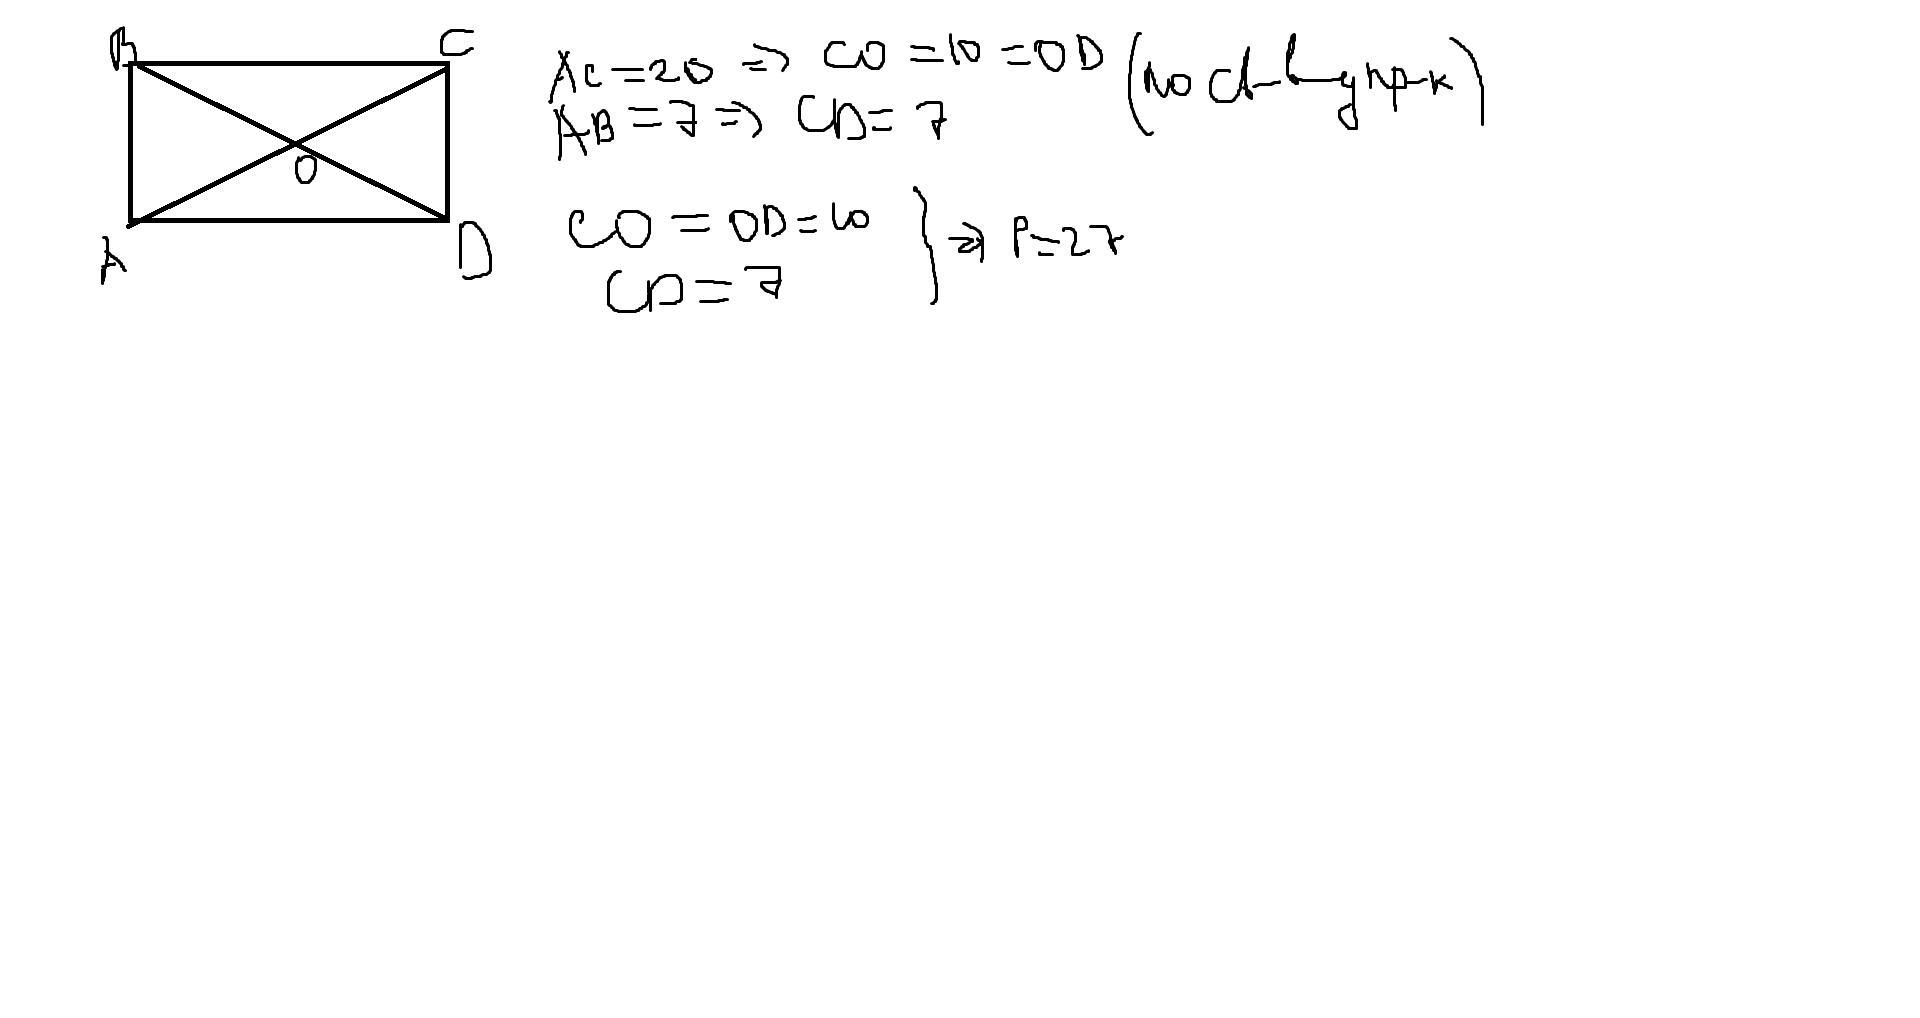 B C
O
A D
AC=20 => CO=10=OD (по св-ву пр-к)
AB=7 => CD=7
CO=OD=10
CD=7
} => P=27